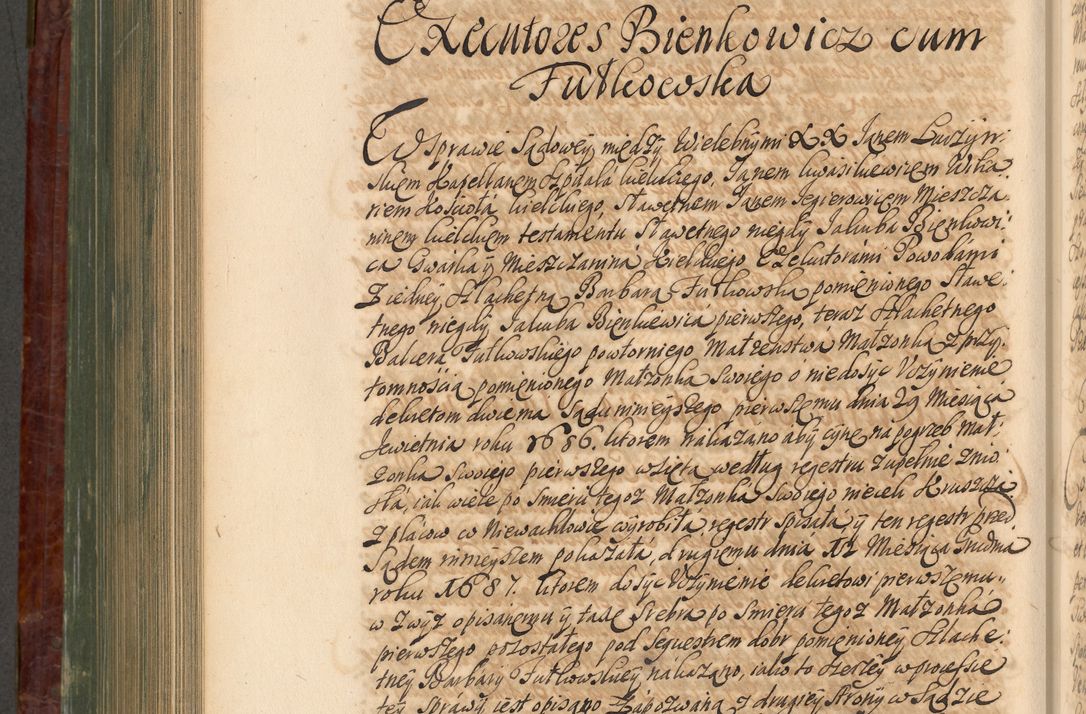 Executores Bienkowicz cum
Futkowska
W Sprawie Sądowey między Wielebnymi XX Janem Luczyn:
skiem Kapellanem Szpitala kielckiego, Janem kwasniewicem Wika:
riem Kosciola kielckiego, sławetnem Janem Jegierowicem Mieszcza:
ninem kielckiem testamentu Sławetnego niegdy Jakuba Bienkowi:
ca Gwarka y Mieszczanina Kielckiego Exekutorami Powodami
z iedney, Slachetną Barbarą Futkowską pomienionego Sławe:
tnego niegdy Jakuba Bienkiewica pierwszego, teraz Slachetnego
Balcera Futkowskiego powtornego Małzenstwa Małzonka z przy:
tomnoscią pomienionego Małzonka Swoiego o niedosyc Vczynienie
dekretom dwiema Sądu ninieyszego pierwszemu dnia 29 Miesiąca
kwietnia roku 1686. ktorem nakazano aby cynę na pogrzeb Mał:
zonka Swoiego pierwszego wziętą według regestru zupełnie znio:
sła, iak wiele po Smierci tegoz Małzonka Swoiego niecek Kruszcza
z placow w Niewachlowie wyrobiła, regestr spisała y ten regestr przed
Sądem ninieyszem pokazała, drugiemu dnia 12 Miesiąca Grudnia
roku 1687. ktorem dosyc Vczynienie dekretowi pierwszemu
w zwyz opisanemu y tase Srebra po Smierci tegoz Małzonka
pierwszego pozostałego pod Sequestrem dobr pomienioney Slache:
tney Barbary Futkowskiey nakazano, iako to szerzey w processie
tey Sprawy iest opisano Zapozwaną z drugiey strony w Sądzie